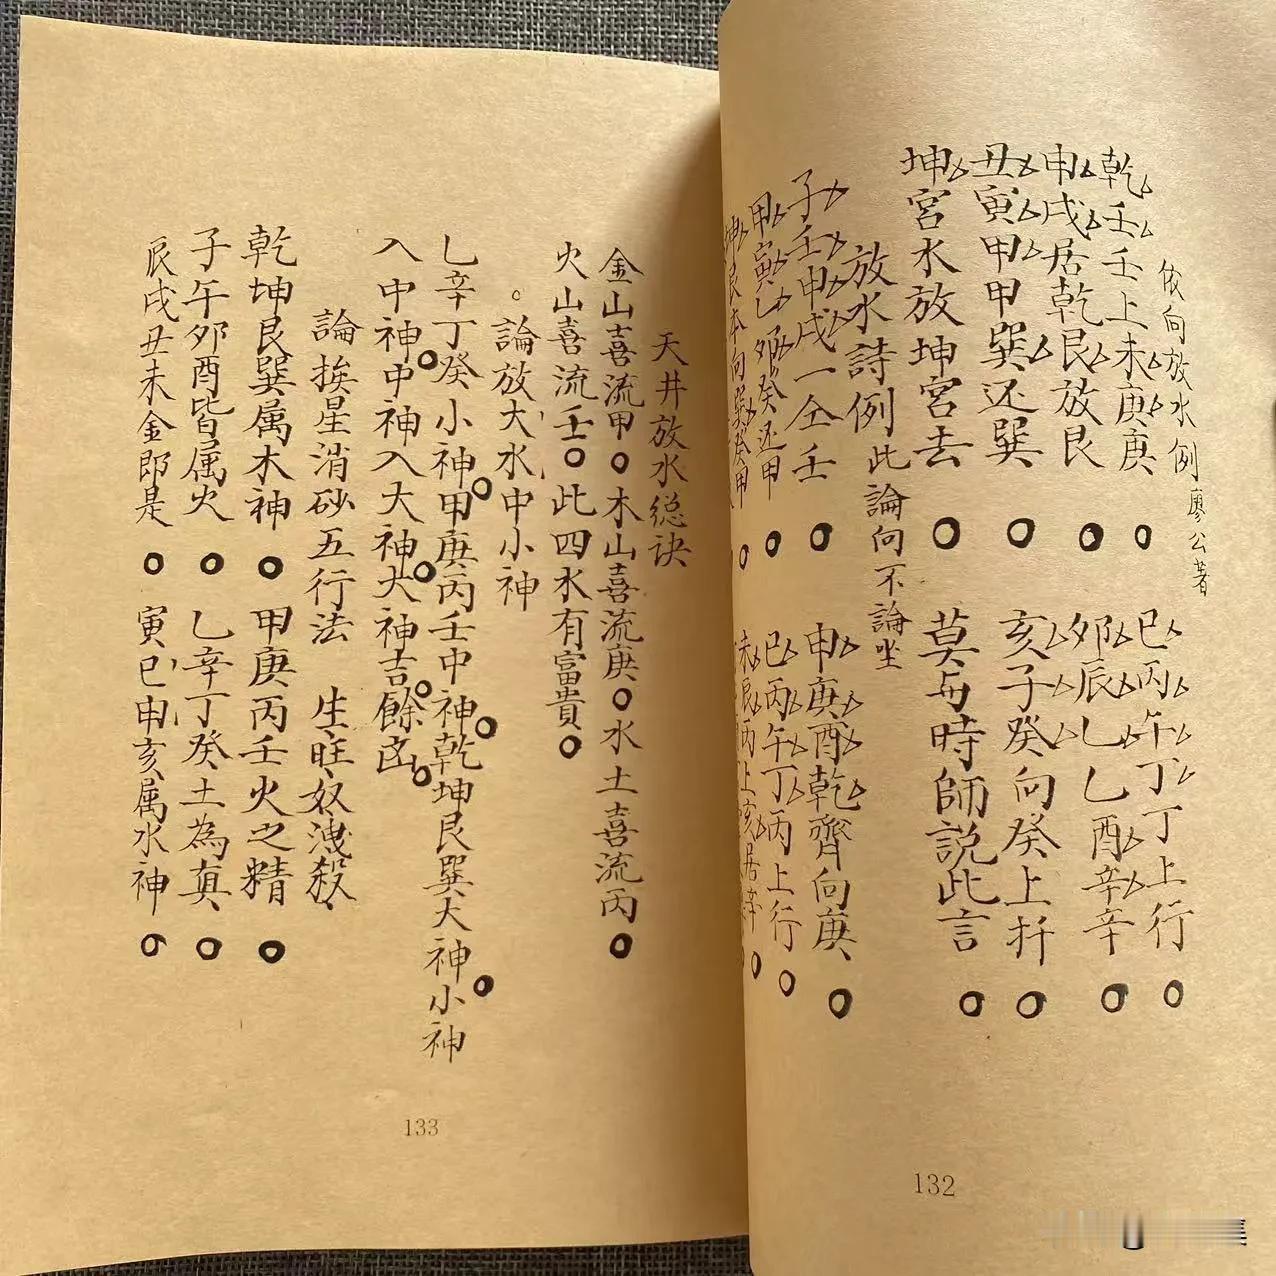 依向放水例 廖公著
乾壬壬上未庚庚 巳丙午丁丁上行
申戌居乾艮放艮 卯辰乙乙酉辛辛
丑寅甲甲巽还巽 亥子癸向癸上扦
坤宮水放坤宮去 莫与時師説此言
放水詩例 此論向不論坐
子壬申戌一仝壬 申庚酉乾齊向庚
甲寅乙卯癸还甲 巳丙午丁丙上行
坤艮本向巽癸甲 未艮丙上亥居辛
132
天井放水総诀
金山喜流甲木山喜流庚水土喜流丙
火山喜流壬此四水有富貴
論放大水中小神
乙辛丁癸小神甲庚丙壬中神乾坤艮巽大神小神
入中神中神入大神大神吉餘凶
論挨星消砂五行法 生旺奴洩殺
乾坤艮巽属木神 甲庚丙壬火之精
子午卯酉皆属火 乙辛丁癸土為真
辰戌丑未金郎是 寅巳申亥属水神
133